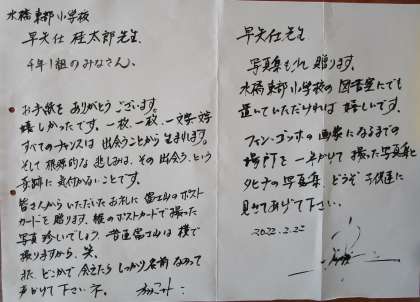 水橋東部小学校
早矢仕 桂太郎先生
4年1組のみなさん、
お手紙をありがとうございます。
嬉しかったです。一枚、一枚、一文字一文字
すべてのチャンスは出会うことから生まれます。
そして根源的な悲しみは、その出会う、という
奇跡に気付かないことです。
皆さんからいただいたお礼に富士山のポスト
カードを贈ります。縦のポストカードで撮った
写真珍しいでしょう。普通富士山は横で
撮りますから、笑。
また、どこかで会えたらしっかり名前なのって
声かけて下さいネ。
早矢仕先生
写真集も2冊贈ります。
水橋東部小学校の図書室にでも
置いていただければ嬉しいです。
ファン・ゴッホの画家になるまでの
場所を一年かけて撮った写真集と
タヒチの写真集、どうぞ子供達に
見せてあげて下さい。
2022.2.22